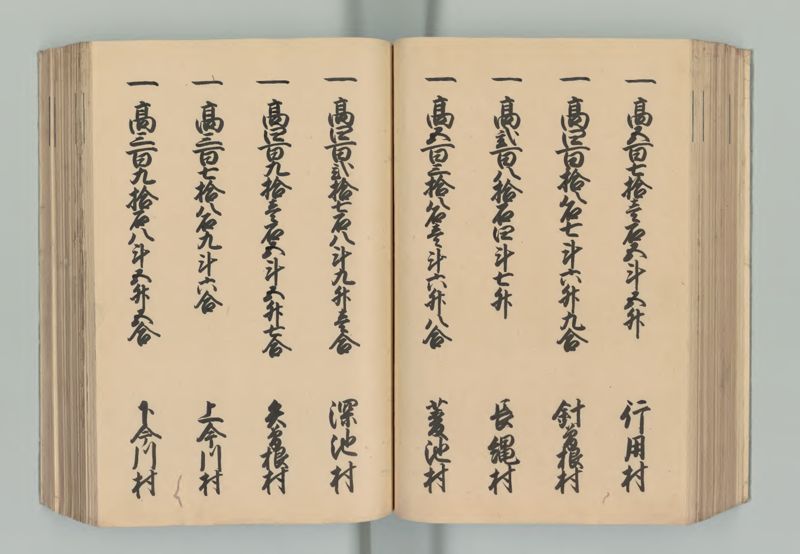 一 高五百七拾壱石五斗五升 行用村
一 高四百拾八石七斗六升九合 針曽根村
一 高弐百八拾石四斗七升 長縄村
一 高五百三拾八石壱斗六升八合 菱池村
一 高四百弐拾七石八斗九升壱合 深池村
一 高四百九拾壱石五斗五升七合 矢曽根村
一 高三百七拾八石九斗六合 上今川村
一 高三百九拾石八斗五升五合 下今川村